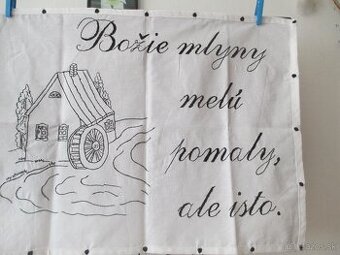 Božie mlyny
melú
pomaly,
ale isto.